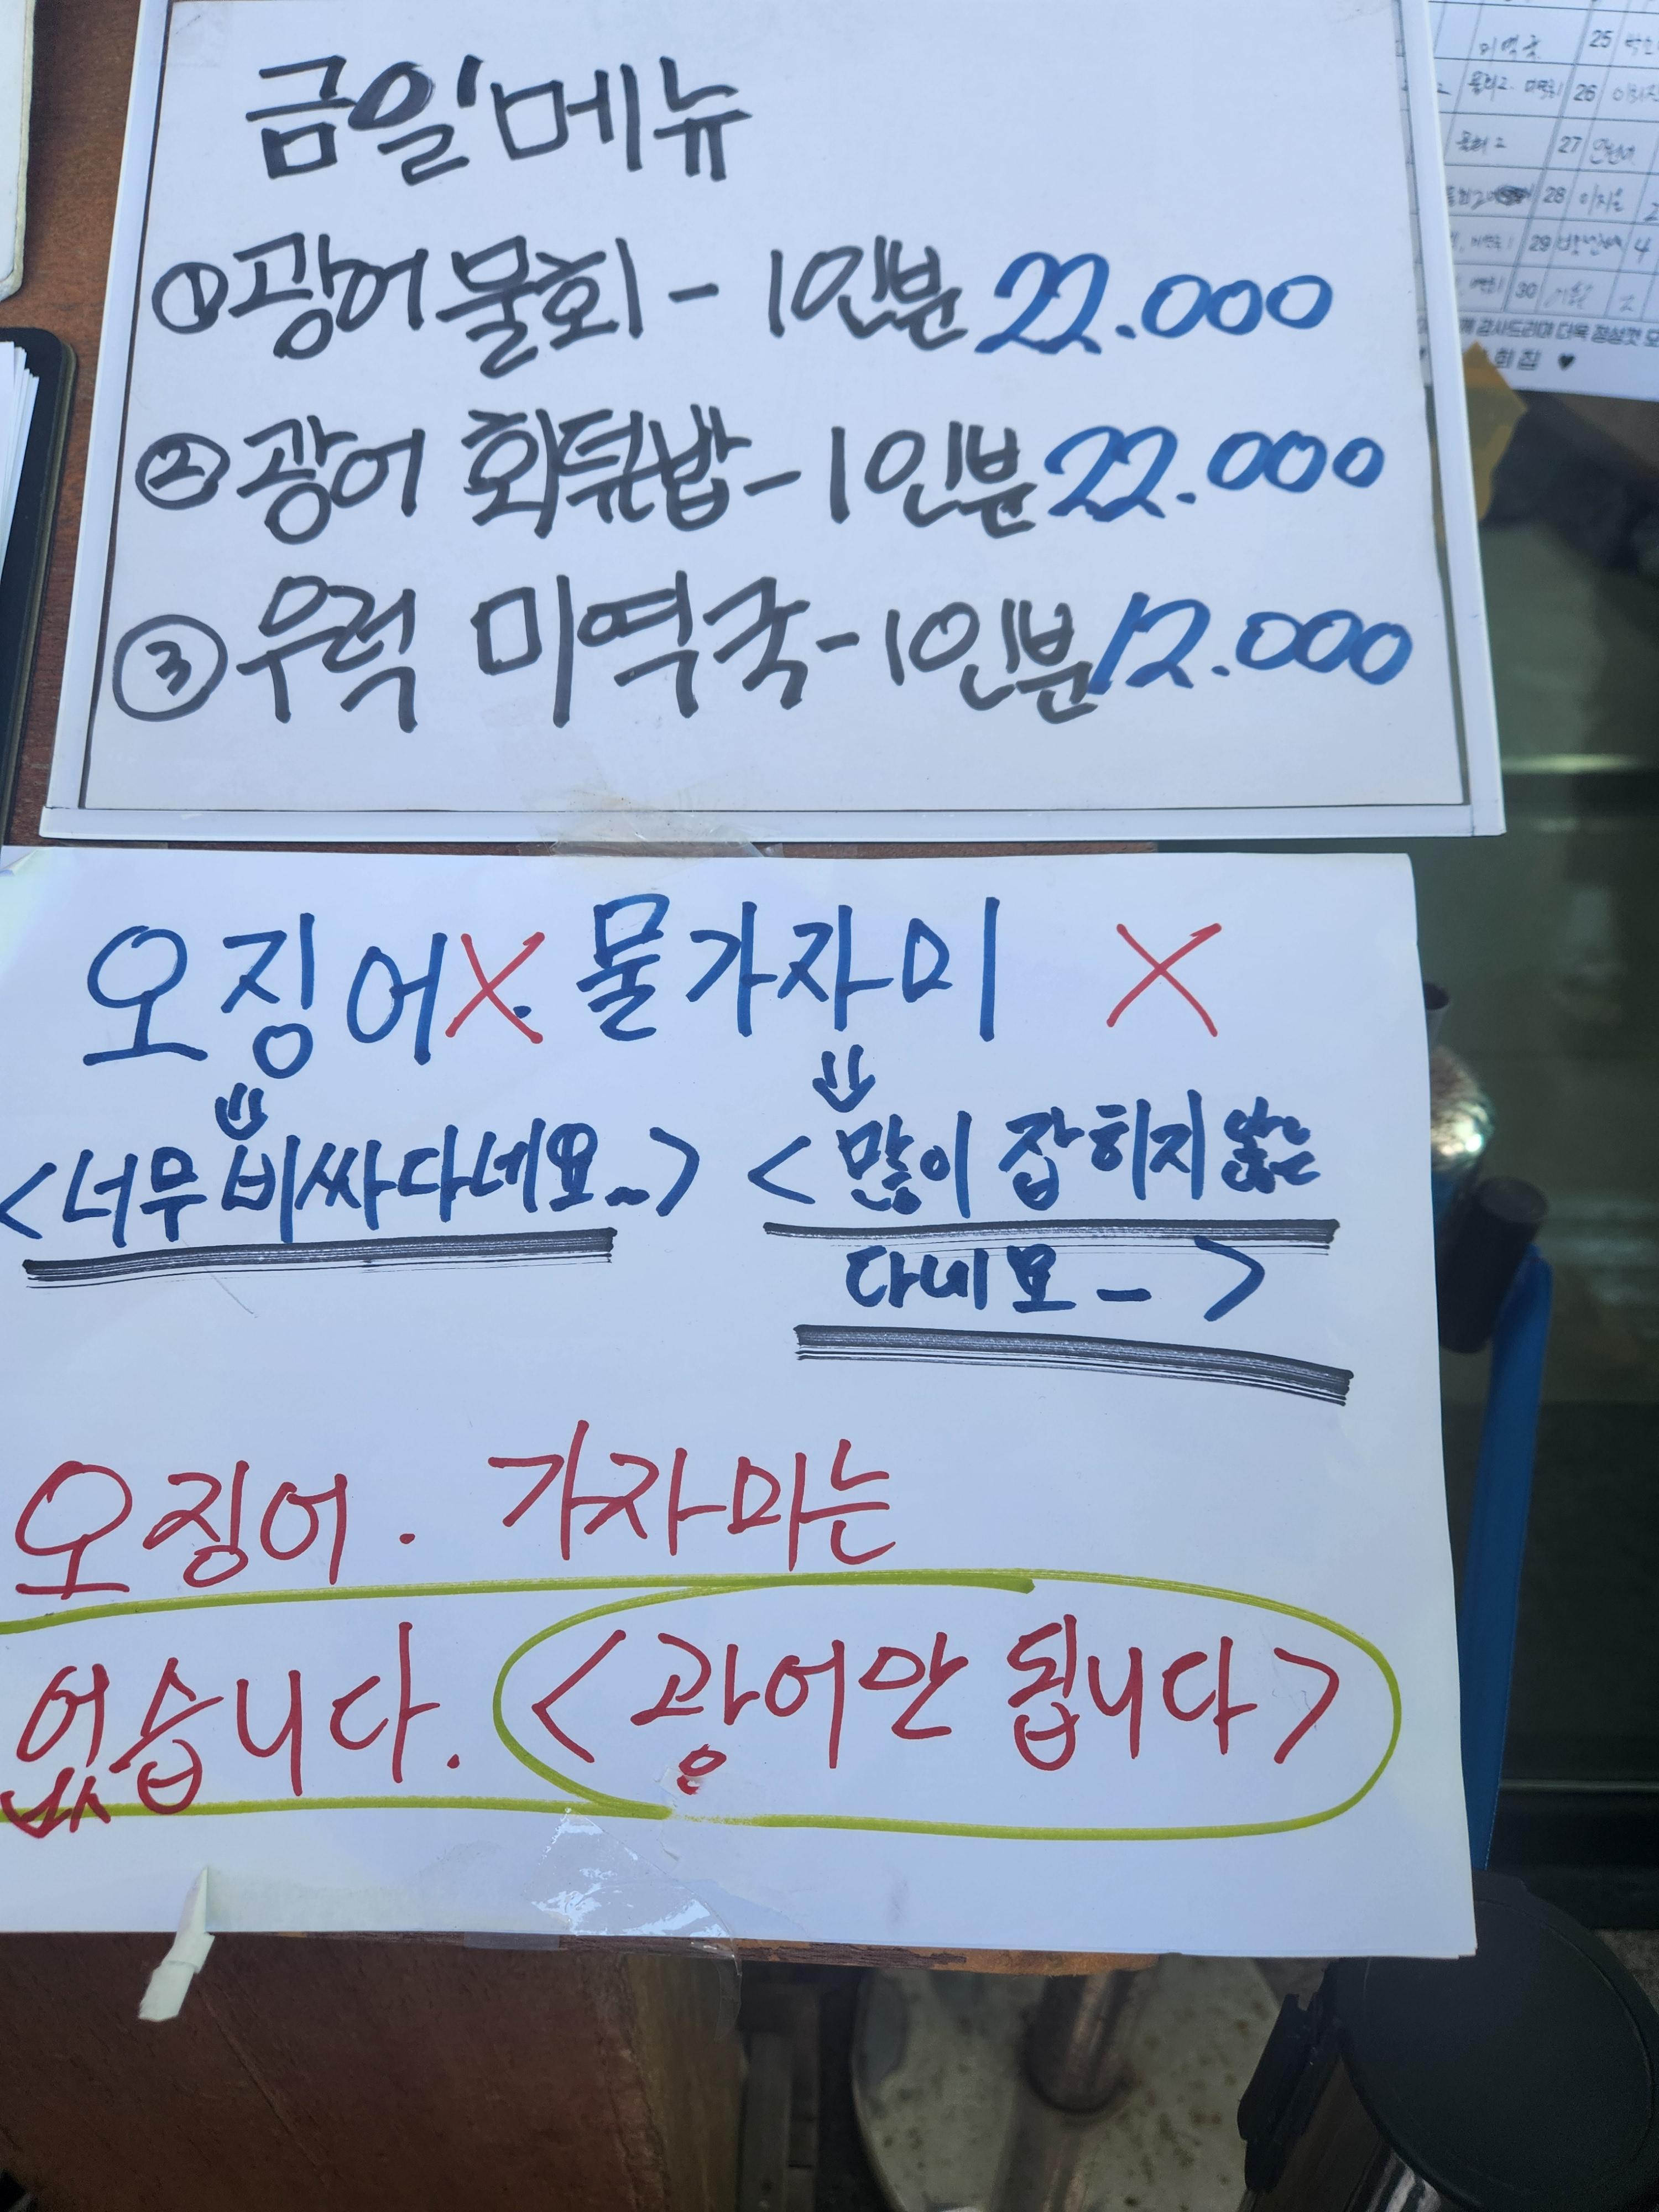 금일메뉴
①광어물회 - 1인분 22.000
②광어 회덮밥 - 1인분 22.000
③우럭 미역국 - 1인분 12.000
오징어X. 물가자미 X
⇓ ⇓
<너무 비싸다네요..> <많이 잡히지 않는
다네요 - >
오징어 . 가자미는
없습니다. <광어만 됩니다>
미역국 25
물회2. 미역국1 26
물회2 27
28 이지은 2
29 4
30 2
감사드리며 더욱 정성껏 모
회집 ♥